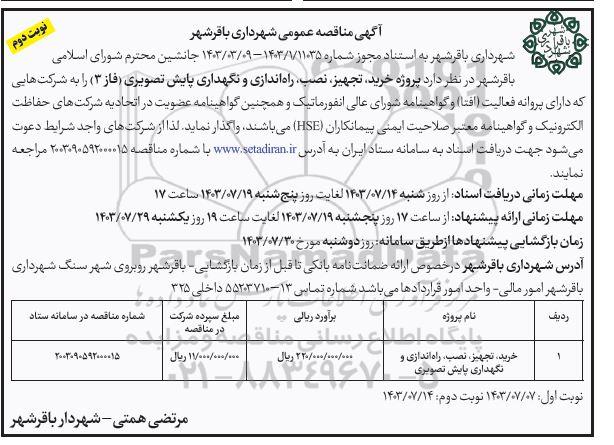 آگهی مناقصه عمومی شهرداری باقرشهر
نوبت دوم
شهرداری باقرشهر به استناد مجوز شماره ۱۴۰۳/۱/۱۱۰۳۵–۱۴۰۳/۰۳/۰۹ جانشین محترم شورای اسلامی
باقرشهر در نظر دارد پروژه خرید، تجهیز، نصب، راه‌اندازی و نگهداری پایش تصویری (فاز ۳) را به شرکت‌هایی
که دارای پروانه فعالیت (افتا) و گواهینامه شورای عالی انفورماتیک و همچنین گواهینامه عضویت در اتحادیه شرکت‌های حفاظت
الکترونیک و گواهینامه معتبر صلاحیت ایمنی پیمانکاران (HSE) می‌باشند، واگذار نماید. لذا از شرکت‌های واجد شرایط دعوت
می‌شود جهت دریافت اسناد به سامانه ستاد ایران به آدرس www.setadiran.ir با شماره مناقصه ۲۰۰۳۰۹۰۵۹۲۰۰۰۰۱۵ مراجعه
نمایند.
مهلت زمانی دریافت اسناد: از روز شنبه ۱۴۰۳/۰۷/۱۴ لغایت روز پنج‌شنبه ۱۴۰۳/۰۷/۱۹ ساعت ۱۷
مهلت زمانی ارائه پیشنهاد: از ساعت ۱۷ روز پنجشنبه ۱۴۰۳/۰۷/۱۹ لغایت ساعت ۱۹ روز یکشنبه ۱۴۰۳/۰۷/۲۹
زمان بازگشایی پیشنهادها از طریق سامانه: روز دوشنبه مورخ ۱۴۰۳/۰۷/۳۰
آدرس شهرداری باقرشهر درخصوص ارائه ضمانت‌نامه بانکی تا قبل از زمان بازگشایی- باقرشهر روبروی شهر سنگ شهرداری
باقرشهر امور مالی- واحد امور قراردادها می‌باشد شماره تماس ۱۳–۵۵۲۰۳۷۱۰ داخلی ۳۲۵
ردیف نام پروژه برآورد ریالی مبلغ سپرده شرکت در مناقصه شماره مناقصه در سامانه ستاد
۱ خرید، تجهیز، نصب، راه‌اندازی و نگهداری پایش تصویری ۲۲۰/۰۰۰/۰۰۰/۰۰۰ ریال ۱۱/۰۰۰/۰۰۰/۰۰۰ ریال ۲۰۰۳۰۹۰۵۹۲۰۰۰۰۱۵
نوبت اول: ۱۴۰۳/۰۷/۰۷ نوبت دوم: ۱۴۰۳/۰۷/۱۴
مرتضی همتی – شهردار باقرشهر
ParsNamadData
پایگاه اطلاع رسانی مناقصه و مزایده
۰۲۱-۸۸۳۴۹۶۷۰-۵